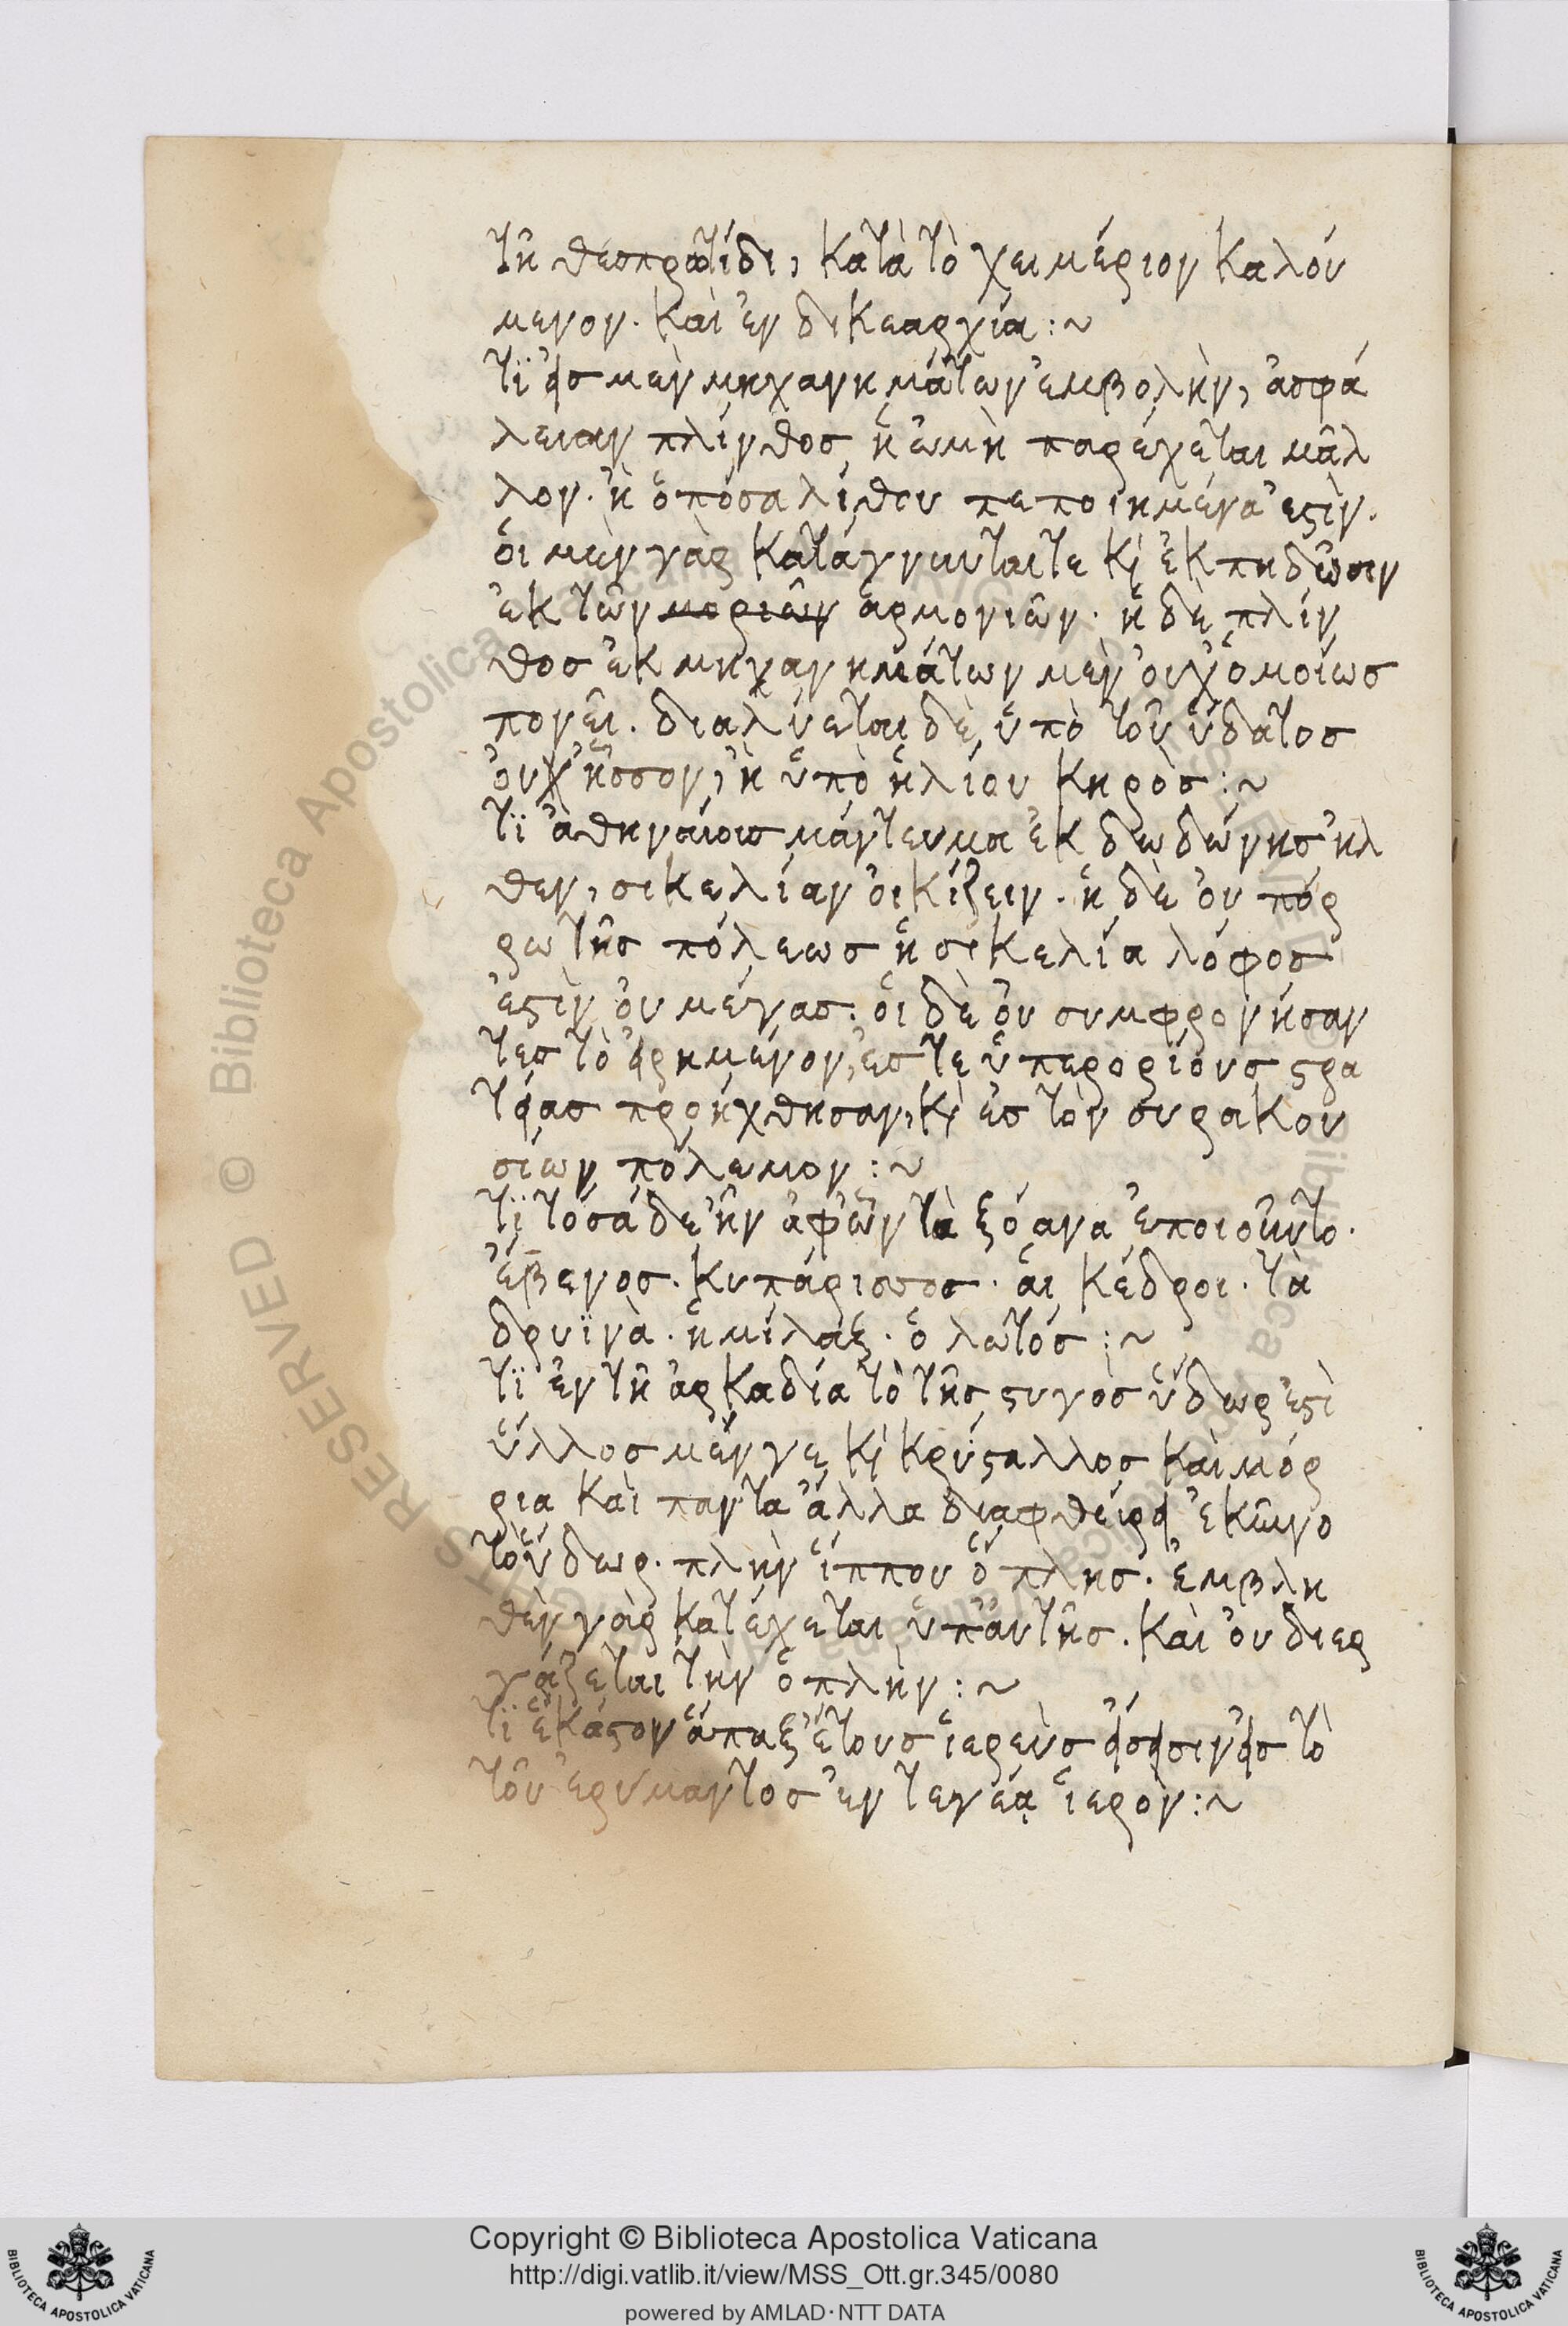 τῆ θεσπρωτίδι, κατὰ τὸ χειμέριον καλού
μενον. καὶ ἐν δικεαρχία :~
τϊ ἐς μὲν μηχανημάτων ἐμβολὴν, ἀσφά
λειαν πλίνθος ἡ ὠμὴ παρέχεται μᾶλ
λον. ἢ ὁπόσα λίθου πεποιημένα ἐστίν.
οἱ μὲν γὰρ κατάγνυνταί τε κὶ ἐκπηδῶσιν
ἐκ τῶν μοριῶν ἁρμονιῶν. ἡ δὲ πλίν
θος ἐκ μηχανημάτων μὲν οὐχ ὁμοίως
πονεῖ. διαλύεται δὲ, ὑπὸ τοῦ ὕδατος
οὐχ ἧσσον, ἢ ὑπὸ ἡλίου κηρὸς :~
τϊ ἀθηναίοις μάντευμα ἐκ δωδώνης ἦλ
θεν, σικελίαν οἰκίζειν. ἡ δὲ οὐ πόρ
ρω τῆς πόλεως ἡ σικελία λόφος
ἐστὶν οὐ μέγας. οἱ δὲ οὐ συμφρονήσαν
τες τὸ εἰρημένον, ἔς τε ὑπερορίους στρα
τείας προήχθησαν, κὶ ἐς τὸν συρακου
σίων πόλεμον :~
τϊ τόσάδε ἦν ἀφ' ὧν τὰ ξόανα ἐποιοῦντο.
ἔβενος. κυπάρισσος. αἱ κέδροι. τὰ
δρυϊνὰ. ἡ μίλαξ. ὁ λωτός :~
τϊ ἐν τῆ ἀρκαδία τὸ τῆς στυγὸς ὕδωρ ἐστὶ
ὕλλος μέν γε κὶ κρύσταλλος καὶ μόρ
ρια καὶ παντα ἄλλα διαφθείρει ἐκεῖνο
τὸ ὕδωρ. πλὴν ἵππου ὁπλῆς. ἐμβλη
θὲν γὰρ κατέχεται ὑπ' αὐτῆς. καὶ οὐ διερ
γάζεται τὴν ὁπλὴν :~
τϊ ἑκάστου ἅπαξ ἔτους ἱερεὺς εἴσεισιν εἰς τὸ
τοῦ ἐρύμαντος ἐν τεγέᾳ ἱερὸν :~
Copyright © Biblioteca Apostolica Vaticana
http://digi.vatlib.it/view/MSS_Ott.gr.345/0080
powered by AMLAD·NTT DATA